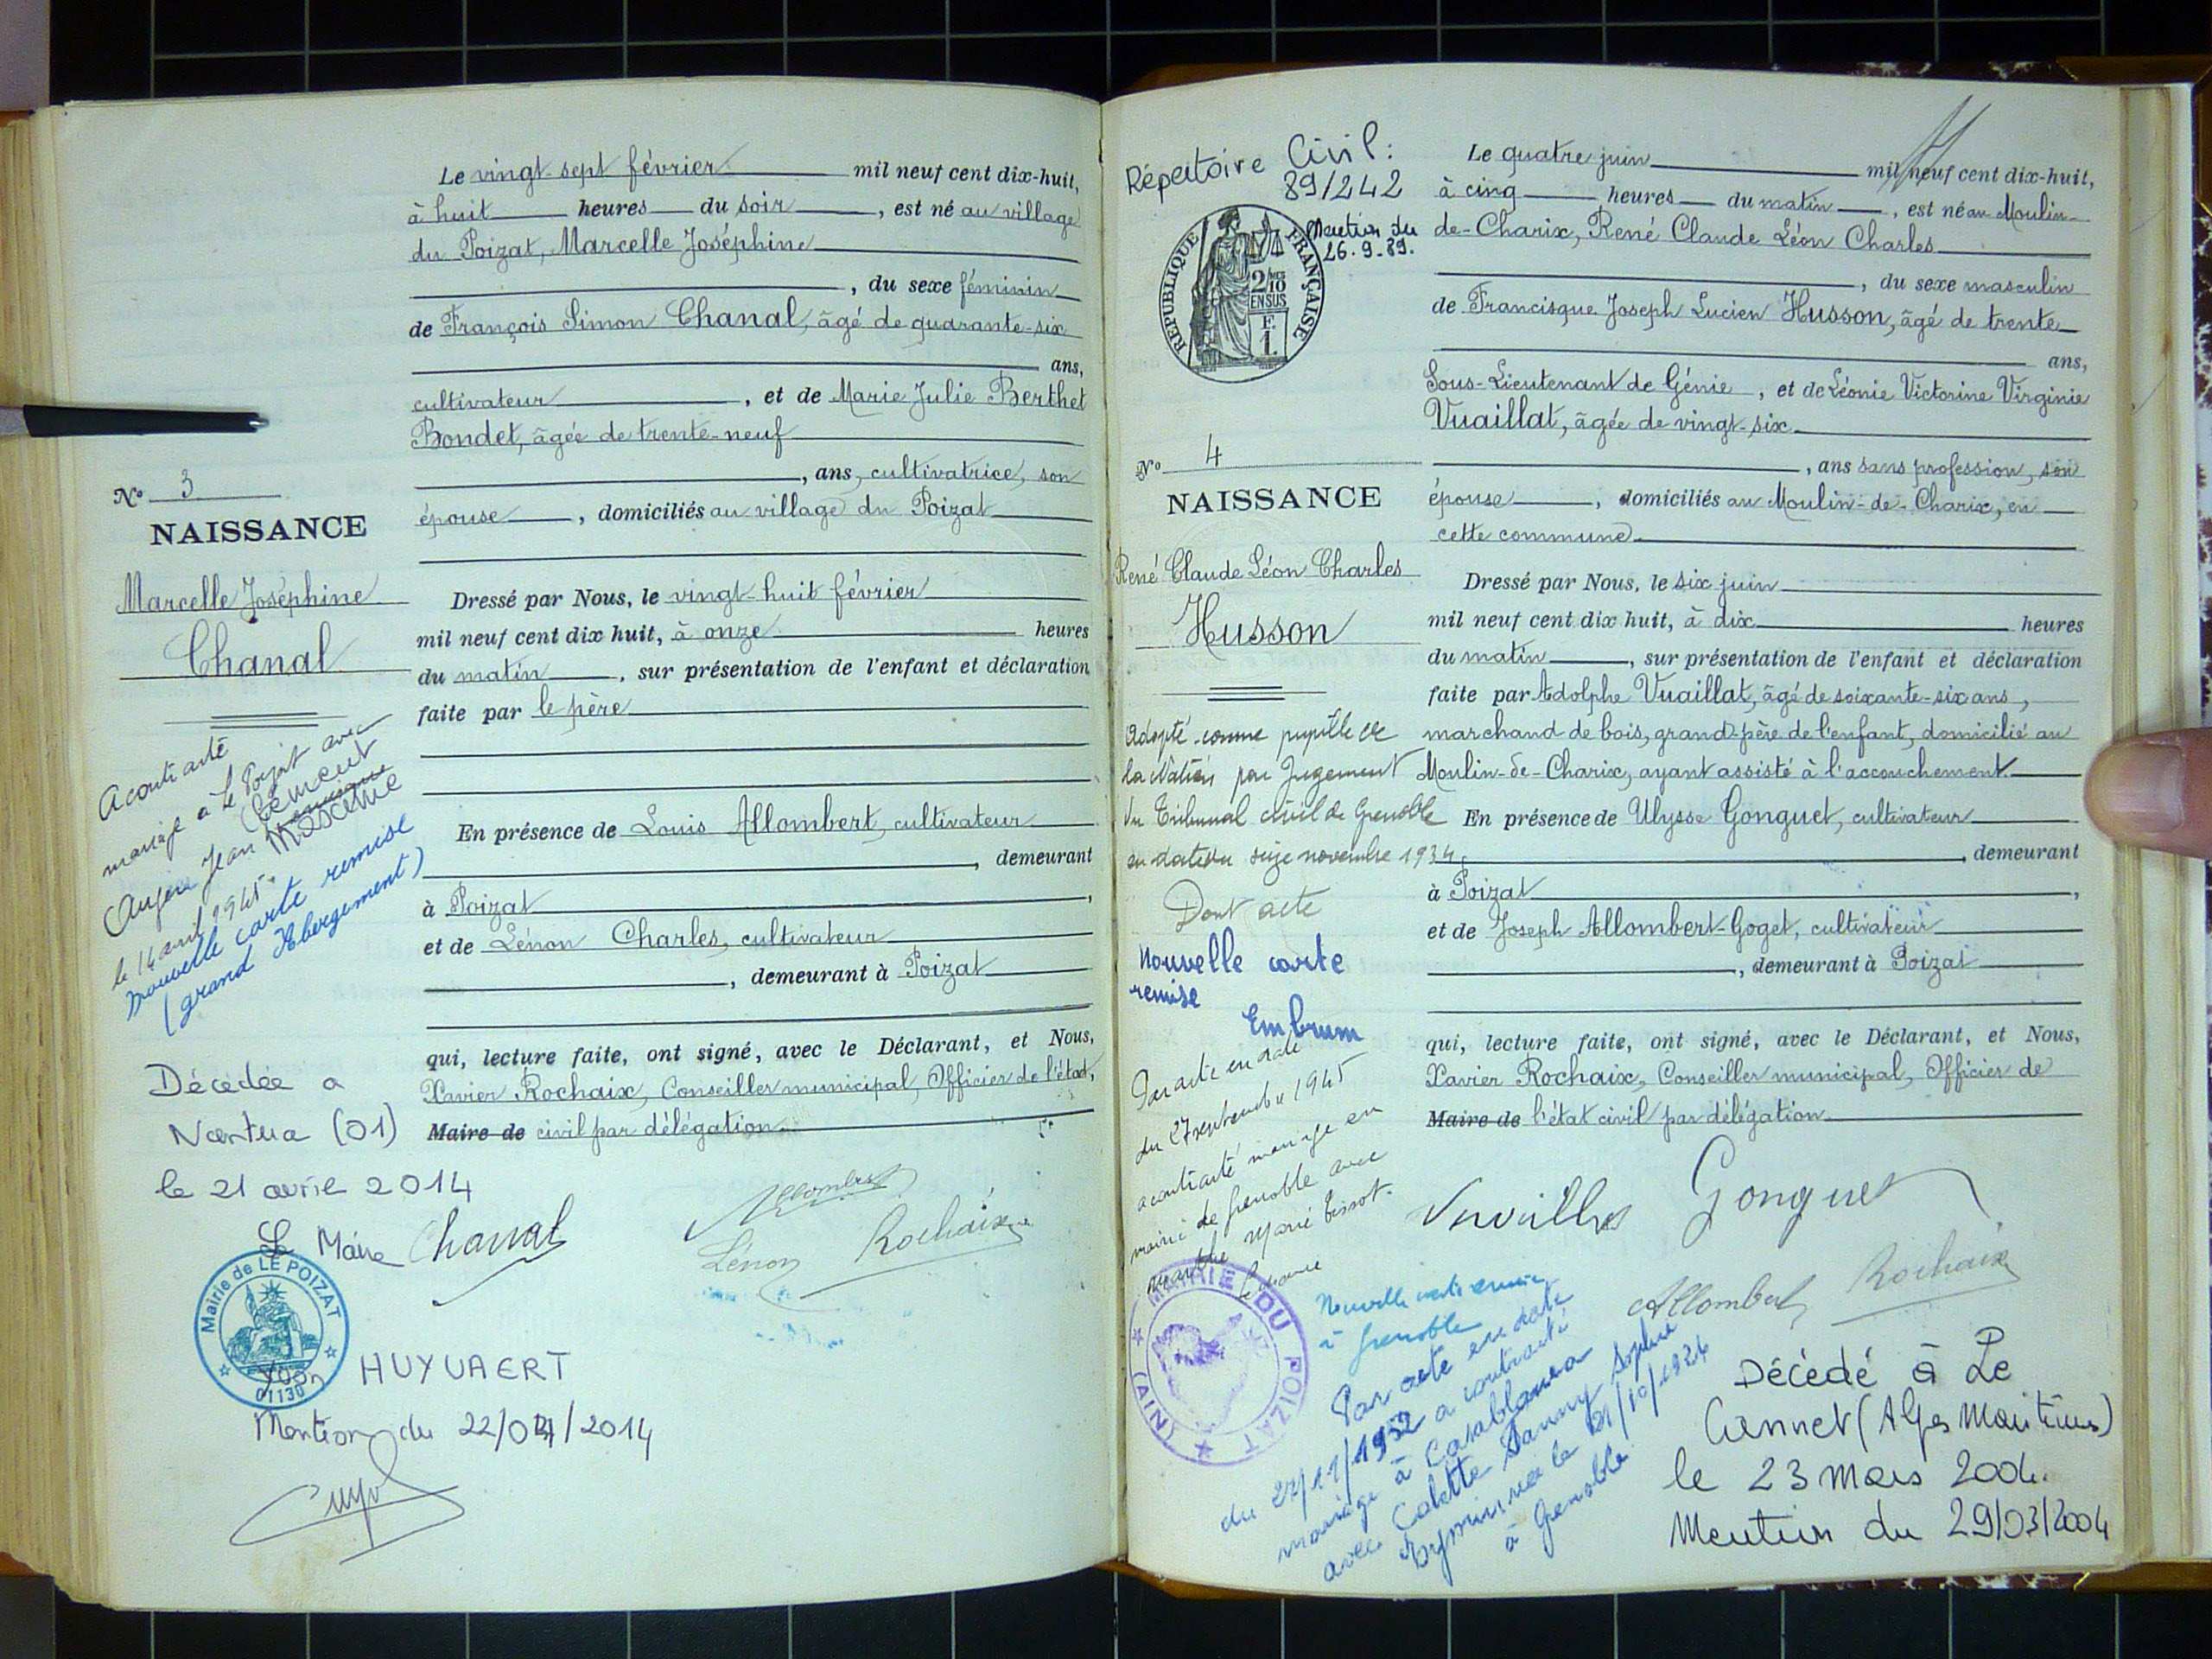 Le vingt-sept février mil neuf cent dix-huit,
à huit heures du soir, est né au village
du Poizat, Marcelle Joséphine
, du sexe féminin
de François Simon Chanal, âgé de quarante-six
ans,
cultivateur, et de Marie Julie Berthet
Bondet, âgée de trente-neuf
, ans, cultivatrice, son
épouse, domiciliés au village du Poizat
Dressé par Nous, le vingt-huit février
mil neuf cent dix huit, à onze heures
du matin, sur présentation de l'enfant et déclaration
faite par le père
En présence de Louis Allombert, cultivateur
, demeurant
à Poizat,
et de Lénon Charles, cultivateur
, demeurant à Poizat
qui, lecture faite, ont signé, avec le Déclarant, et Nous,
Xavier Rochaix, Conseiller municipal, Officier de l'état,
Maire de civil par délégation
Allombert
Chanal Lénon Rochaix
N° 3
NAISSANCE
Marcelle Joséphine
Chanal
A contracté
mariage à Le Poizat avec
Jean Clément
le 14 avril 1945.
nouvelle carte remise
(grand Abergement)
Décédée à
Nantua (01)
le 21 avril 2014
Le Maire
Mairie de LE POIZAT
01130
Yvon HUYVAERT
Mention du 22/04/2014
Répertoire Civil:
89/242
Mention du
26.9.89.
REPUBLIQUE FRANÇAISE
2/10
EN SUS
F.
1.
N° 4
NAISSANCE
René Claude Léon Charles
Husson
Adopté comme pupille de
la Nation par Jugement
du Tribunal civil de Grenoble
en date du seize novembre 1934.
Dont acte
Nouvelle carte
remise
Embrum
Par acte en date
du 27 septembre 1945
a contracté mariage en
mairie de Grenoble avec
Marthe Marie Tissot.
MAIRIE DU POIZAT
(AIN)
Nouvelle carte remise
à Grenoble
Par acte en date
du 27/11/1952 a contracté
mariage à Casablanca
avec Colette Fanny Sophie
née le 21/10/1924
à Grenoble
Le quatre juin mil neuf cent dix-huit,
à cinq heures du matin, est né au Moulin-
de-Charix, René Claude Léon Charles
, du sexe masculin
de Francisque Joseph Lucien Husson, âgé de trente
ans,
Sous-Lieutenant de Génie, et de Léonie Victorine Virginie
Vuaillat, âgée de vingt-six
, ans sans profession, son
épouse, domiciliés au Moulin-de-Charix, en
cette commune.
Dressé par Nous, le six juin
mil neuf cent dix huit, à dix heures
du matin, sur présentation de l'enfant et déclaration
faite par Adolphe Vuaillat, âgé de soixante-six ans,
marchand de bois, grand-père de l'enfant, domicilié au
Moulin-de-Charix, ayant assisté à l'accouchement.
En présence de Ulysse Gonguet, cultivateur
, demeurant
à Poizat,
et de Joseph Allombert-Goget, cultivateur
, demeurant à Poizat
qui, lecture faite, ont signé, avec le Déclarant, et Nous,
Xavier Rochaix, Conseiller municipal, Officier de
Maire de l'état civil par délégation
Vuaillat Gonguet
Allombert Rochaix
Décédé à Le
Cannet (Alpes Maritimes)
le 23 mars 2004.
Mention du 29/03/2004